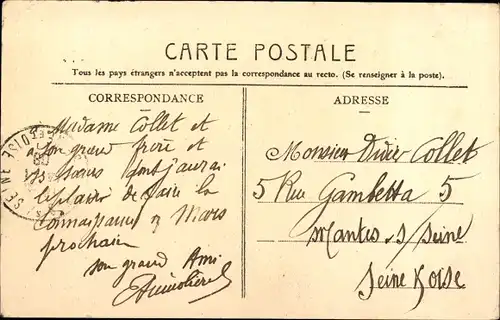 CARTE POSTALE
Tous les pays étrangers n'acceptent pas la correspondance au recto. (Se renseigner à la poste).
CORRESPONDANCE
Madame Collet et
à son grand frère et
ses sœurs dont j'aurai
le plaisir de faire la
connaissance en Mars
prochain
son grand Ami
ADRESSE
Monsieur Didier Collet
5 Rue Gambetta 5
Mantes s/Seine
Seine & Oise